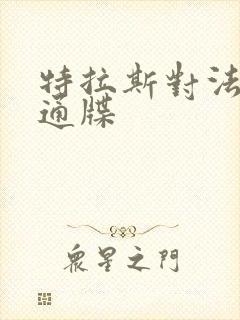 特拉斯對法
通牒
眾星之門